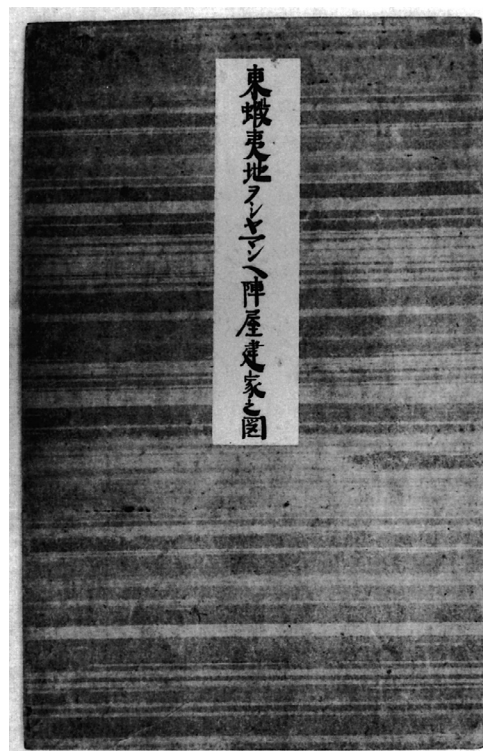 東蝦夷地ヲシヤマンヘ陣屋建家之図